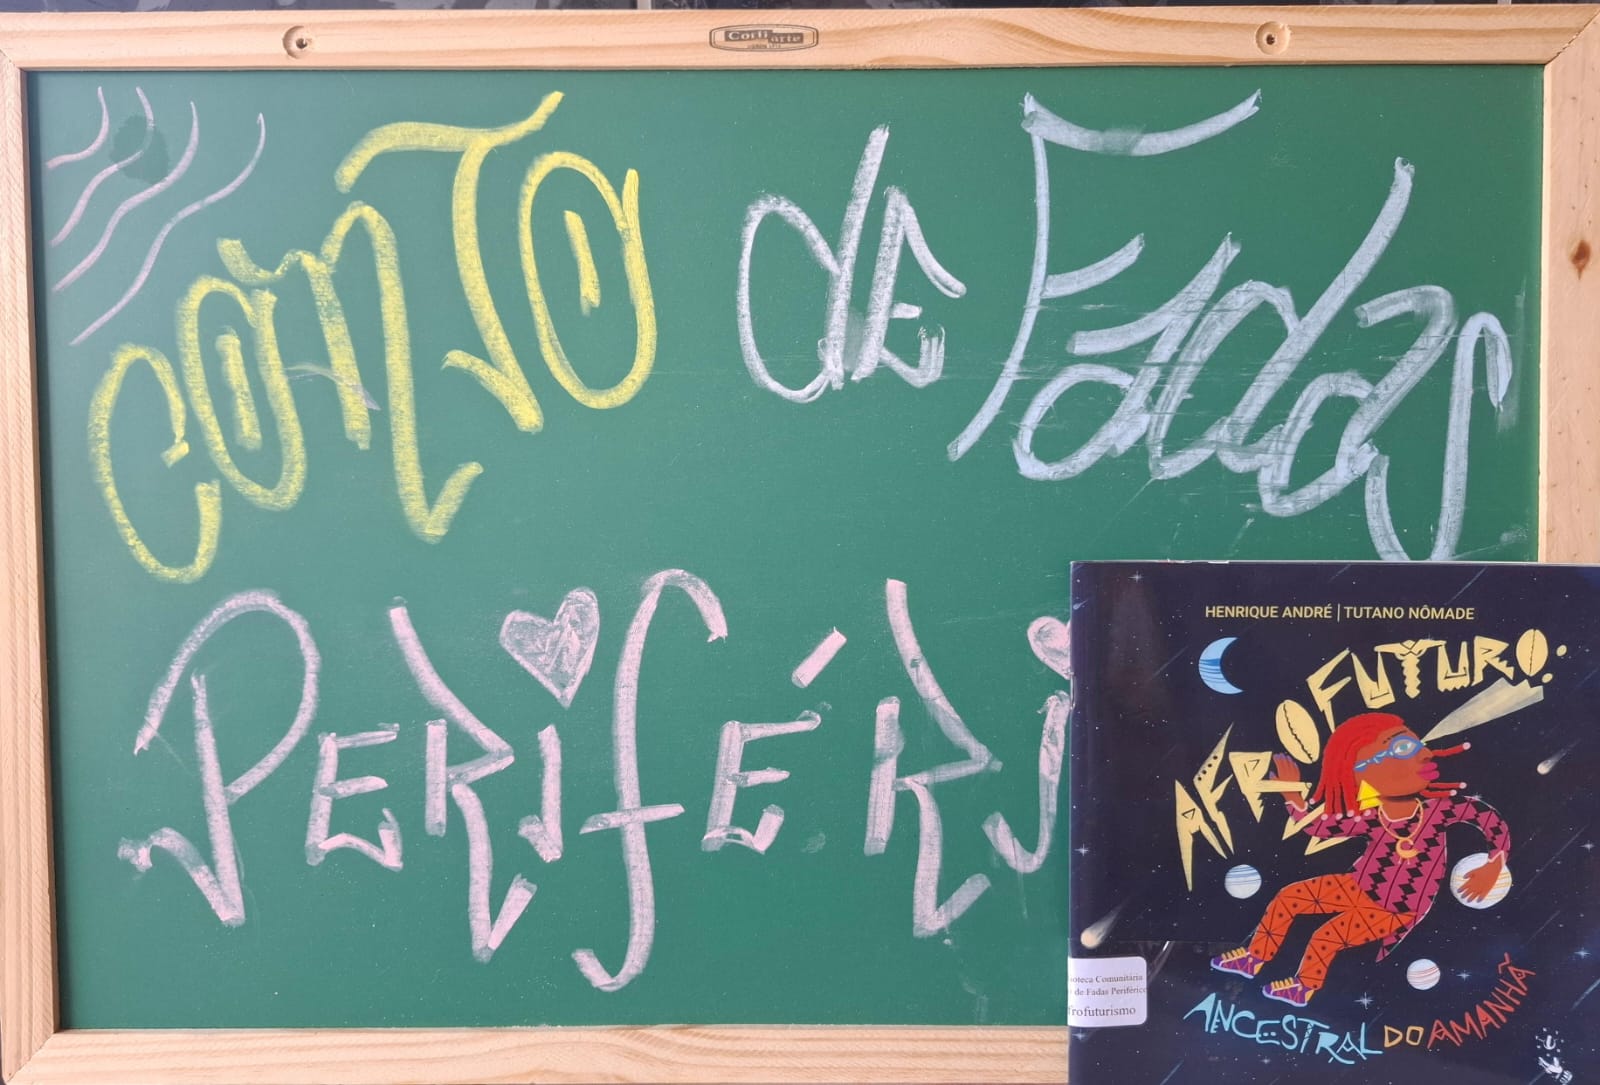 Corti arte
CONTO de Fadas
PERIFÉRI
HENRIQUE ANDRÉ | TUTANO NÔMADE
AFROFUTURO:
ANCESTRAL DO AMANHÃ
ioteca Comunitária
de Fadas Periférico
frofuturismo